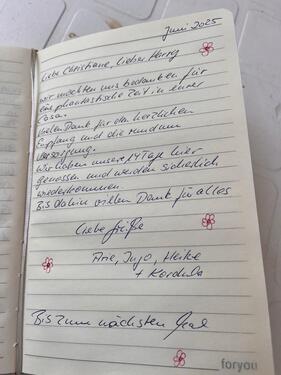 Juni 2025
Liebe Christiane, lieber Harry
wir möchten uns bedanken für
eine phantastische Zeit in eurer
Casa.
Vielen Dank für den herzlichen
Empfang und die rundum
versorgung.
Wir haben unsere 14 Tage hier
genossen und werden sicherlich
wiederkommen.
Bis dahin vielen Dank für alles
Liebe Grüße
Arie, Ingo, Heike
+ Kordula
Bis zum nächsten Mal
foryou